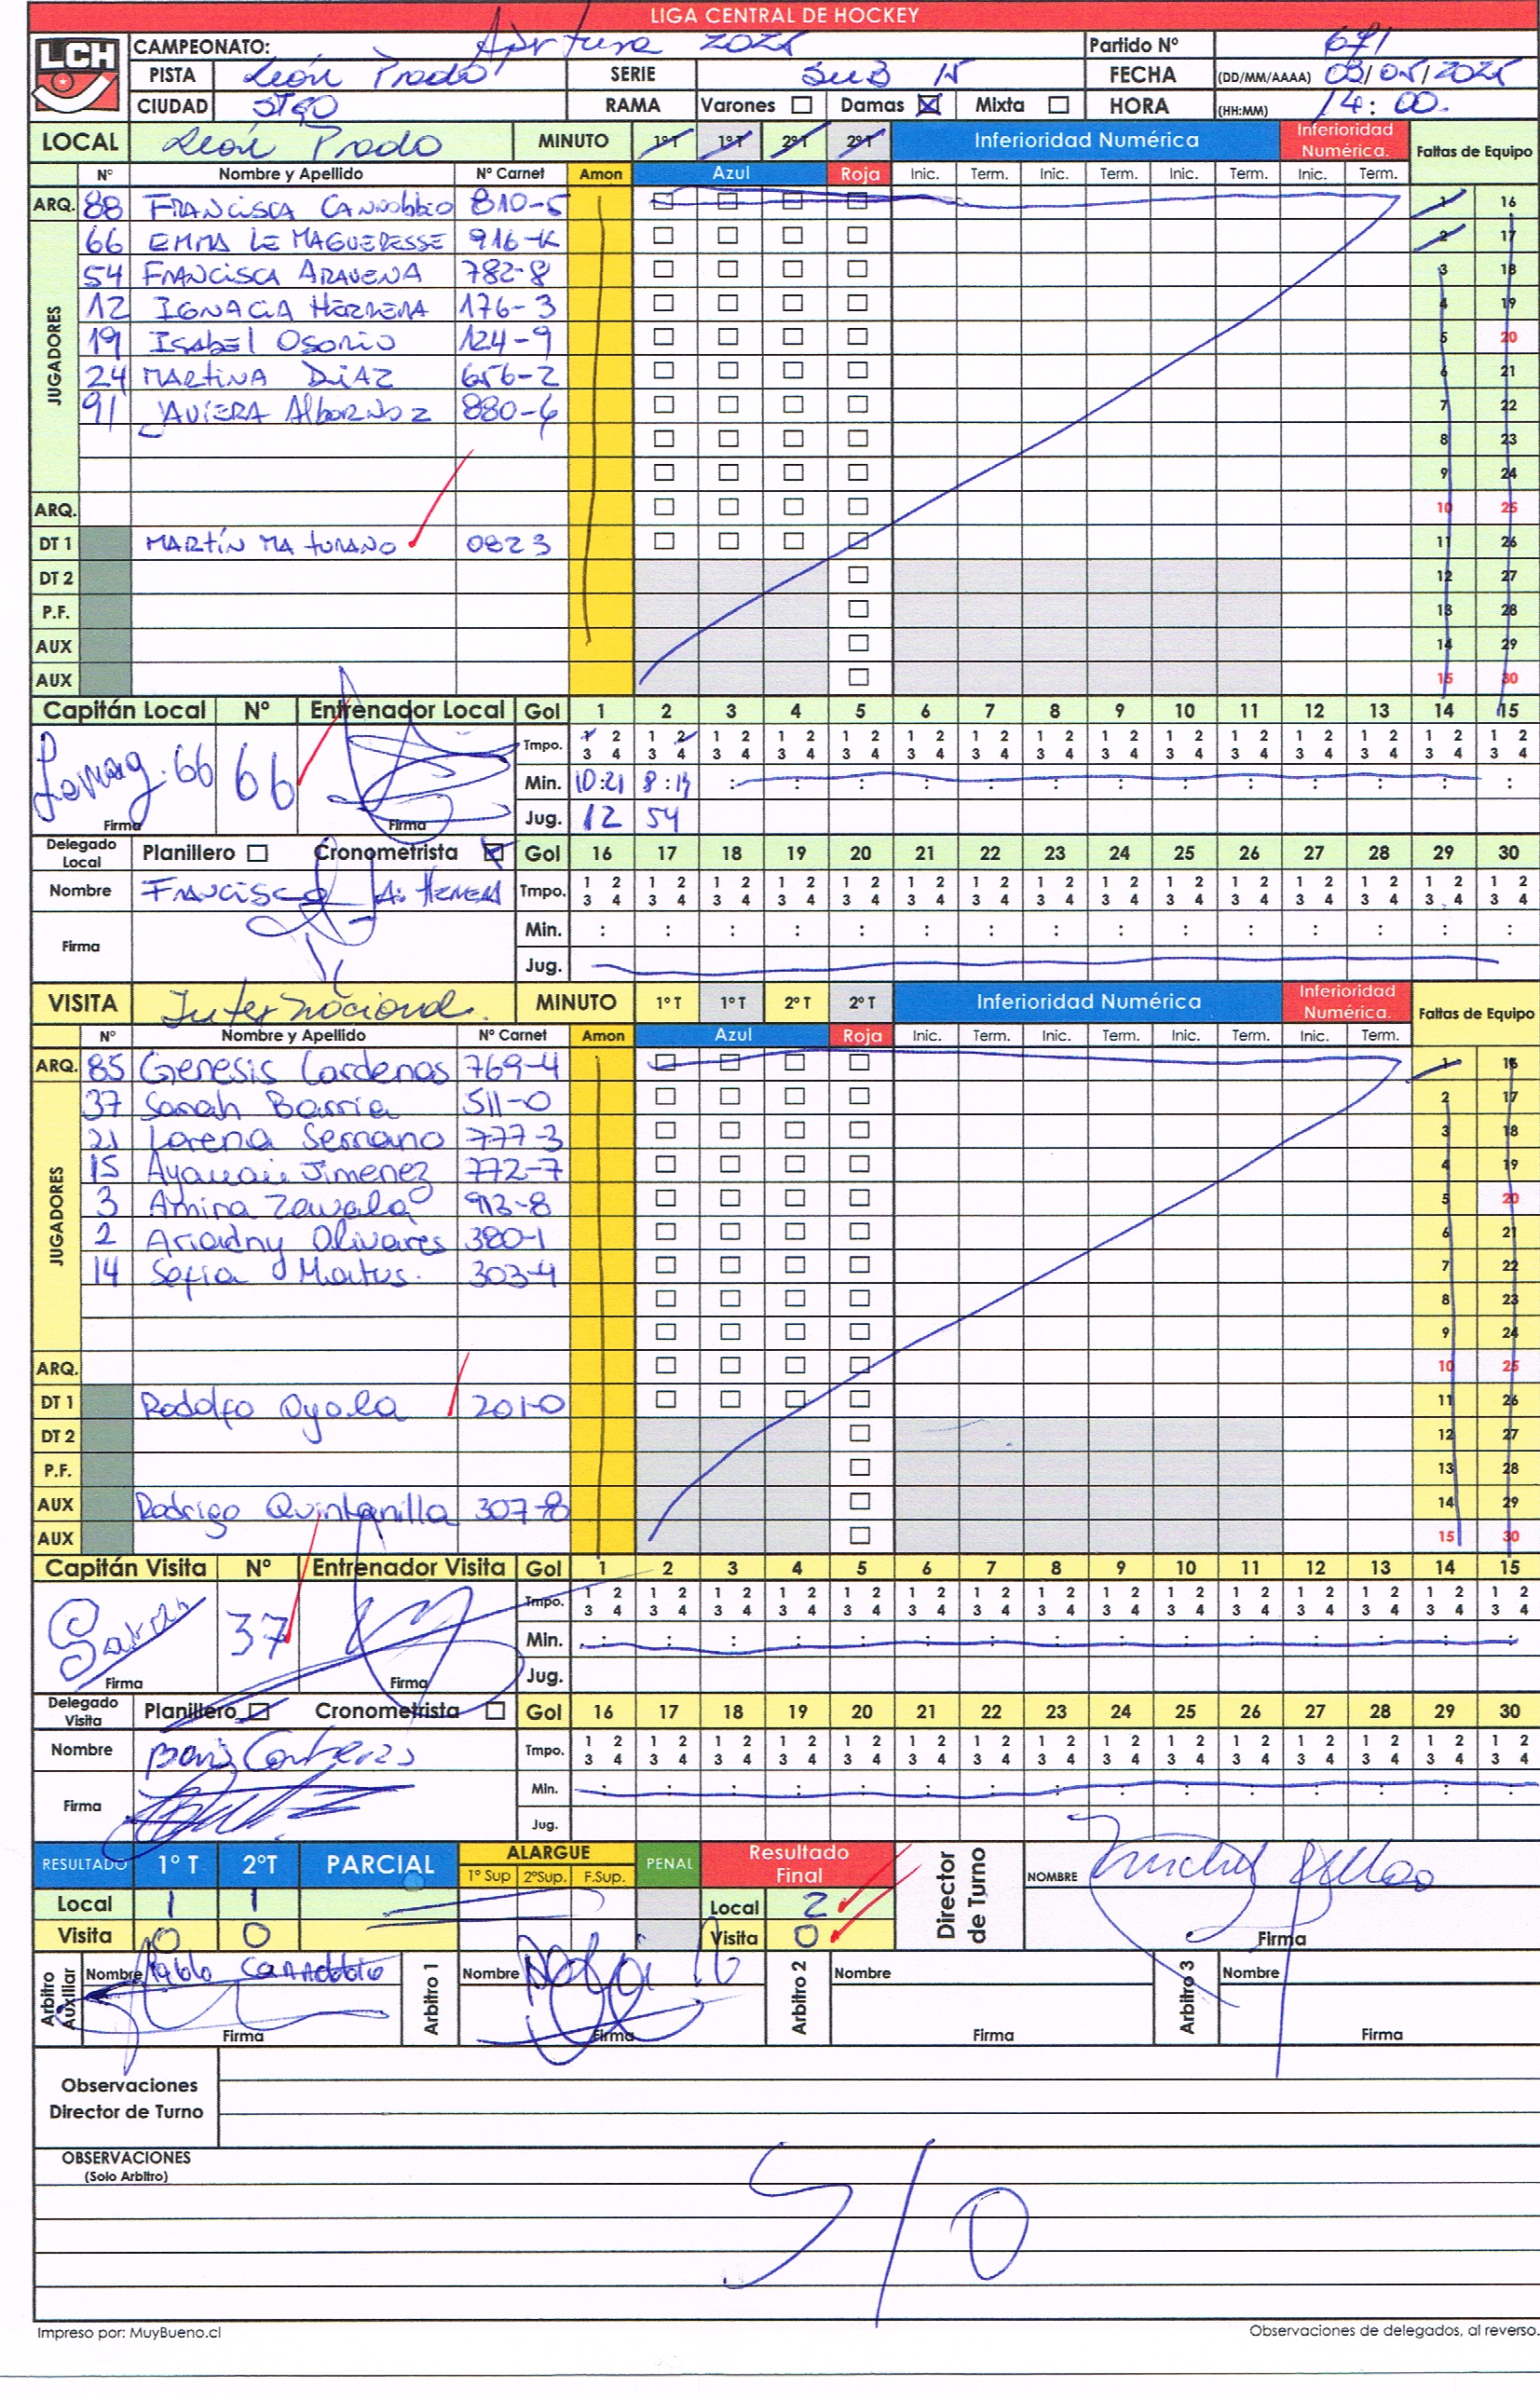 LIGA CENTRAL DE HOCKEY
LCH
CAMPEONATO: Apertura 2025 Partido Nº 671
PISTA León Prado SERIE SUB 15 FECHA (DD/MM/AAAA) 03/05/2025
CIUDAD STGO RAMA Varones ☐ Damas ☒ Mixta ☐ HORA (HH:MM) 14:00.
LOCAL León Prado MINUTO 1ºT 1ºT 2ºT 2ºT Inferioridad Numérica Inferioridad Numérica. Faltas de Equipo
Nº Nombre y Apellido Nº Carnet Amon Azul Roja Inic. Term. Inic. Term. Inic. Term. Inic. Term.
ARQ. 88 FRANCISCA CANNOBBIO 810-5 1 16
JUGADORES
66 EMMA LE MAGUERESSE 916-K 2 17
54 FRANCISCA ARAVENA 782-8 3 18
12 IGNACIA HERRERA 176-3 4 19
19 ISABEL OSORIO 124-9 5 20
24 MARTINA DIAZ 656-2 6 21
91 JAVIERA ALBORNOZ 880-6 7 22
8 23
9 24
ARQ. 10 25
DT 1 MARTÍN MATURANO 0823 11 26
DT 2 12 27
P.F. 13 28
AUX 14 29
AUX 15 30
Capitán Local Nº Entrenador Local Gol 1 2 3 4 5 6 7 8 9 10 11 12 13 14 15
66 66 Tmpo. 1 2 3 4 1 2 3 4 1 2 3 4 1 2 3 4 1 2 3 4 1 2 3 4 1 2 3 4 1 2 3 4 1 2 3 4 1 2 3 4 1 2 3 4 1 2 3 4 1 2 3 4 1 2 3 4 1 2 3 4
Min. 10:21 8:14 : : : : : : : : : : : : :
Firma Firma Jug. 12 54
Delegado Local Planillero ☐ Cronometrista ☒ Gol 16 17 18 19 20 21 22 23 24 25 26 27 28 29 30
Nombre Francisco A. Herrera Tmpo. 1 2 3 4 1 2 3 4 1 2 3 4 1 2 3 4 1 2 3 4 1 2 3 4 1 2 3 4 1 2 3 4 1 2 3 4 1 2 3 4 1 2 3 4 1 2 3 4 1 2 3 4 1 2 3 4 1 2 3 4
Firma Min. : : : : : : : : : : : : : : :
Jug.
VISITA Internacional. MINUTO 1º T 1º T 2º T 2º T Inferioridad Numérica Inferioridad Numérica. Faltas de Equipo
Nº Nombre y Apellido Nº Carnet Amon Azul Roja Inic. Term. Inic. Term. Inic. Term. Inic. Term.
ARQ. 85 Genesis Cardenas 769-4 1 16
JUGADORES
37 Sarah Barria 511-0 2 17
21 Lorena Serrano 777-3 3 18
15 Jimenez 772-7 4 19
3 Amina Zavala 913-8 5 20
2 Ariadny Olivares 380-1 6 21
14 Sofia Matus. 303-4 7 22
8 23
9 24
ARQ. 10 25
DT 1 Rodolfo Oyola 201-0 11 26
DT 2 12 27
P.F. 13 28
AUX Rodrigo Quintanilla 307-8 14 29
AUX 15 30
Capitán Visita Nº Entrenador Visita Gol 1 2 3 4 5 6 7 8 9 10 11 12 13 14 15
Sarah 37 Tmpo. 1 2 3 4 1 2 3 4 1 2 3 4 1 2 3 4 1 2 3 4 1 2 3 4 1 2 3 4 1 2 3 4 1 2 3 4 1 2 3 4 1 2 3 4 1 2 3 4 1 2 3 4 1 2 3 4 1 2 3 4
Min. : : : : : : : : : : : : : : :
Firma Firma Jug.
Delegado Visita Planillero ☐ Cronometrista ☐ Gol 16 17 18 19 20 21 22 23 24 25 26 27 28 29 30
Nombre Contreras Tmpo. 1 2 3 4 1 2 3 4 1 2 3 4 1 2 3 4 1 2 3 4 1 2 3 4 1 2 3 4 1 2 3 4 1 2 3 4 1 2 3 4 1 2 3 4 1 2 3 4 1 2 3 4 1 2 3 4 1 2 3 4
Firma Min. : : : : : : : : : : : : : : :
Jug.
RESULTADO 1º T 2ºT PARCIAL ALARGUE PENAL Resultado Final Director de Turno NOMBRE
1º Sup 2ºSup. F.Sup.
Local 1 1 Local 2
Visita 0 0 Visita 0 Firma
Arbitro Auxiliar Nombre Pablo Cannobbio Arbitro 1 Nombre Arbitro 2 Nombre Arbitro 3 Nombre
Firma Firma Firma Firma
Observaciones
Director de Turno
OBSERVACIONES
(Solo Arbitro)
S/O
Impreso por: MuyBueno.cl Observaciones de delegados, al reverso.